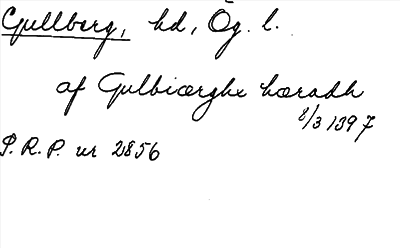 Gullberg, hd, Ög. l.
af Gulbiærghx hæradh
8/3 1397
P.R.P. nr 2856